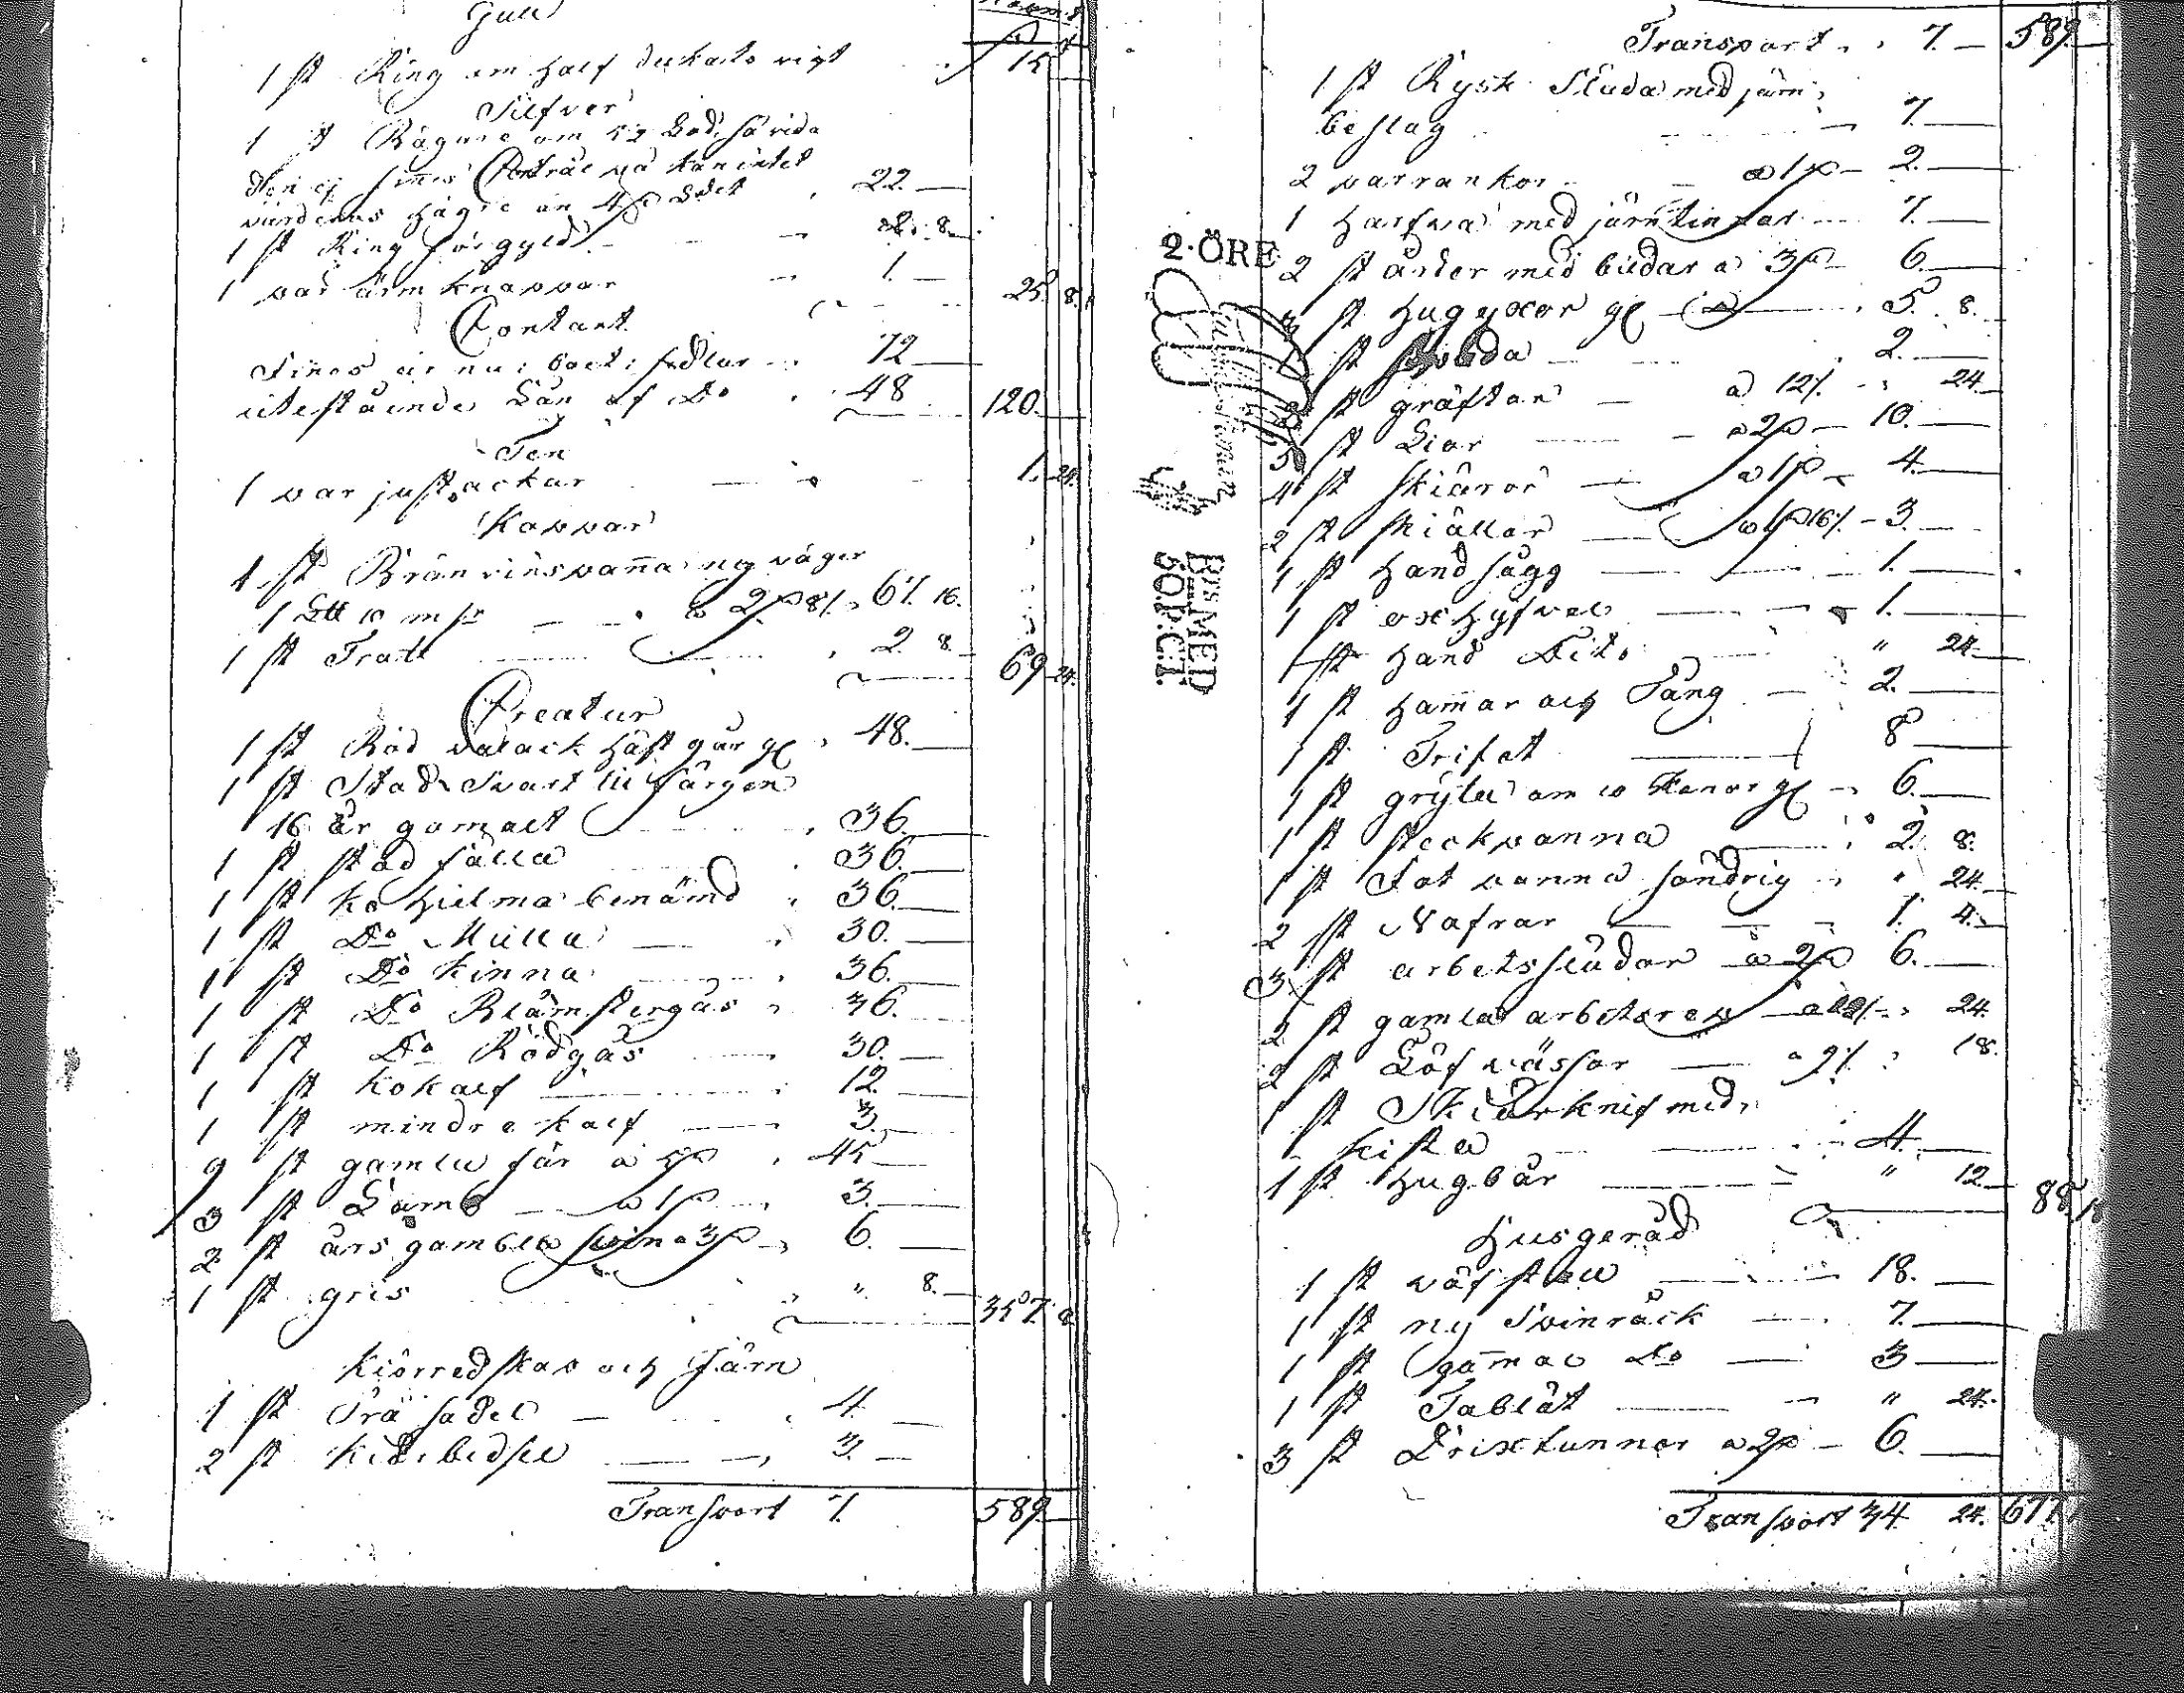 Gull
1 st Ring om half dukats vigt 15 —
Silfver
1 st Bägare om 5½ Lod, så vida
den ej finnes Controlerad kan intet
värderas högre än 4 Lodet 22 —
1 st Ring förgyld 2. 8.
1 par ärm knappar 1 — 25. 8.
Contant
Finnes är nu: boet: sedlar 72 —
utestående Lån af Do 48 120. —
Ten
1 par justackar 1. 24.
Koppar
1 st Bränvinspanna ny väger
1 L℔ 10 m a 2 8/ 61. 16.
1 st Tratt 2. 8. 69 24.
Creatur
1 st Röd valack häst går 48. —
1 st Stod Svart till färgen
16 år gamalt 36. —
1 st stod fålla 36. —
1 st ko Hielma benämd 36. —
1 st Do Mulla — 30. —
1 st Do Kinna 36. —
1 st Do Blämstergås 36. —
1 st Do Rödgås 30. —
1 st kokalf 12 —
1 st mindre kalf — 3. —
9 st gamla får a 5 45 —
3 st Lamb a 1 3. —
2 st års gambla svin a 3 6. —
1 st gris " 8. 357. 8
Kiörredskap och Järn
1 st Trä sadel — 4 —
2 st Kiör bedsel — 3. —
Transport 7. 589. —
Transport 7. — 589. —
1 st Rysk Släda med järn
beslag 7. —
2 par rankor a 1 — 2. —
1 Harfva med järn tinnar 7. —
2 st årder med bildar a 3 6. —
3 st Hugyxor 5. 8.
1 st 2. —
2 st gräftar — a 12/. 24.
5 st Liar — a 2 — 10. —
4 st Skiäror — a 1 — 4. —
2 st skiällor — a 1 16/. — 3. —
1 st Hand sågg — 1. —
1 st ox Hyfvel — 1. —
1 st Hand Dito " 24. —
1 st Hammar och Tång — 2. —
1 st Trifot — 8 —
1 st gryta om 10 Kanor 6. —
1 st steckpanna 2. 8.
1 st Fat panna söndrig " 24. —
2 st Nafrar — 1. 4.
3 st arbetsslädar a 2 6. —
2 st gamla arbetsrep — a 12/. 24.
2 st Löf vässor — a 9/. 18.
1 st Skiärknif med
kista 4. —
1 st Hugbår — " 12 — 88. 18
Husgeråd
1 st väfstoll 18. —
1 st ny Spinråck 7. —
1 st gammal Do — 3 —
1 st Tablät — " 24.
3 st Drixtunnor a 2 — 6. —
Transport 34 24. 677.
2. ÖRE
BT'S MED
50. P:C:T.